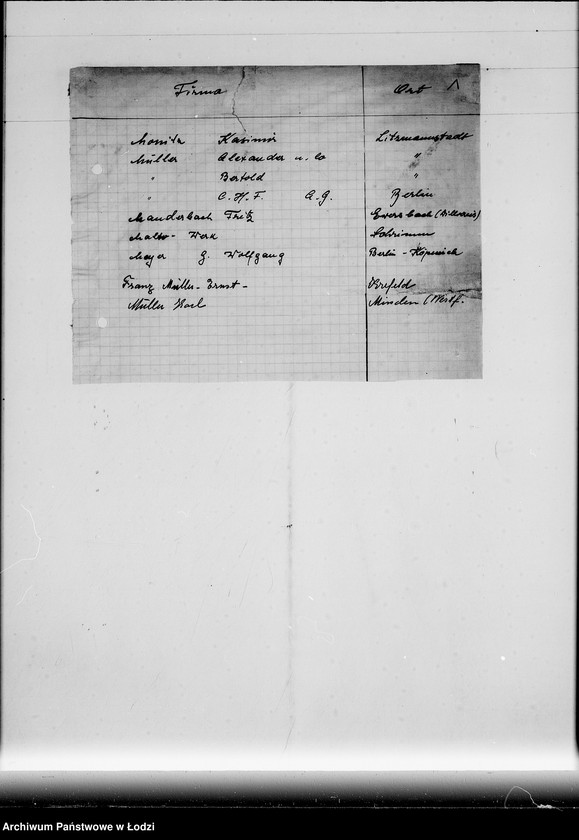 Firma Ort
Monita Kasimir Litzmannstadt
Müller Alexander u. Co "
" Bertold "
" C. H. F. A. G. Berlin
Manderbach Fritz Ewersbach (Dillkreis)
Malto- Werk Schrimm
Meyer G. Wolfgang Berlin - Köpenick
Franz Müller - Ernst - Krefeld
Müller Karl Minden (Westf.
Archiwum Państwowe w Łodzi